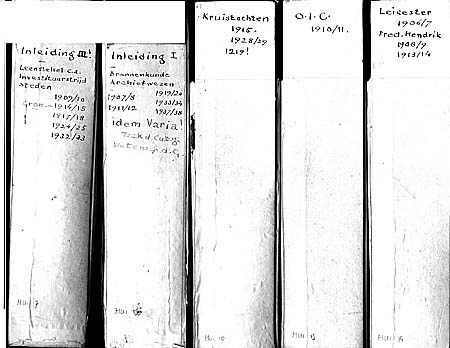 Inleiding III!
Leenstelsel c.a.
Investituurstrijd
Steden
1909/10
1914/15
1917/18
1924/25
1932/33
Inleiding I
Bronnenkunde
Archiefwezen
1907/8 1919/20
1911/12 1933/34
1937/38
idem Varia!
Kruistochten
1915.
1928/29
1219!
O.I.C.
1910/11.
Leicester
1906/7
Fred. Hendrik
1908/9
1913/14